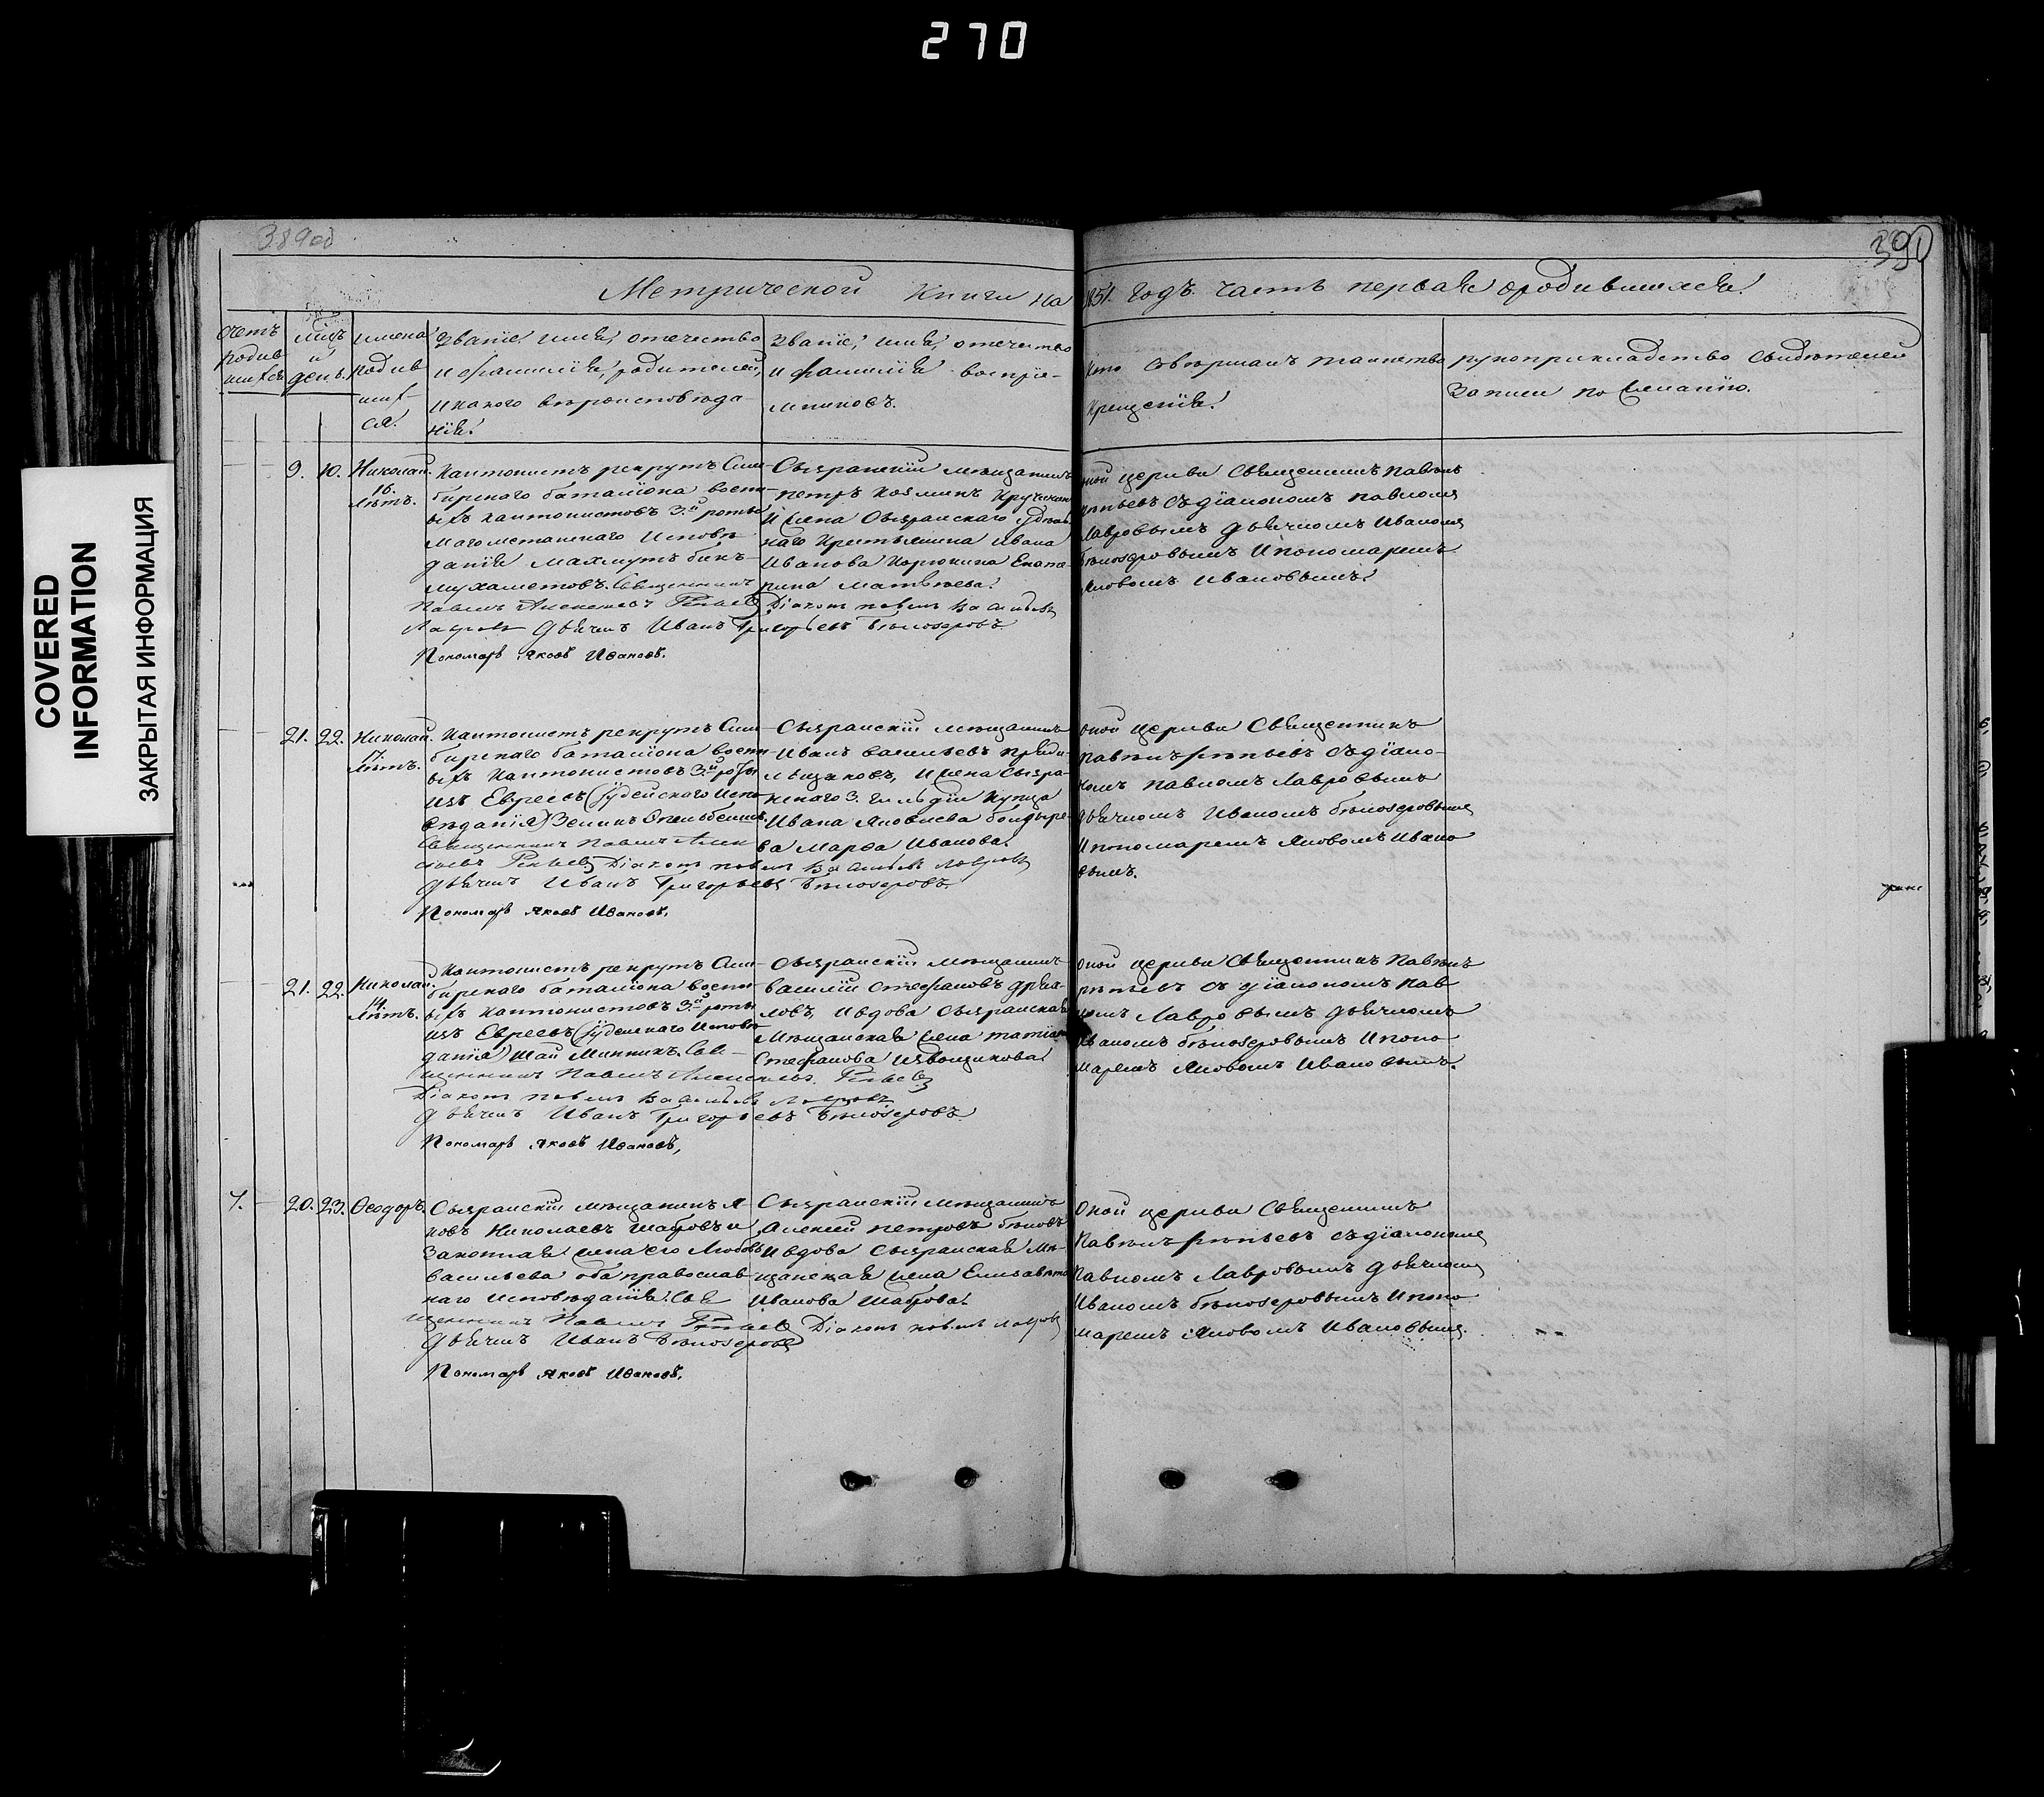 270
COVERED
INFORMATION
ЗАКРЫТАЯ ИНФОРМАЦИЯ
389об
391
Метрической Книги на 1851. годъ. часть первая о родившихся.
Счетъ
родив
шихся
мцъ
и
день.
имена
родив
ших-
ся.
Званiе, имя, отечество
и фамилiя, родителей,
и какого вѣроисповѣда-
нiя.
Званiе, имя, отечество
и фамилiя воспрiе-
мниковъ.
Кто совѣршалъ таинство
крещенiя.
рукоприкладство свидѣтелей
записи по желанiю.
9. 10. Николай.
16.
лѣтъ.
Кантонистъ рекрутъ Сим-
бирскаго баталiона воен-
ыхъ кантонистовъ 3.й роты
Магометанскаго Исповѣ-
данiя Махмутъ бик-
мухаметовъ. Священникъ
Павелъ Алексеевъ
Дiаконъ павелъ Васильевъ
Лавровъ Дьячекъ Иванъ Григорьевъ Бѣлозеровъ
Пономарь Яковъ Ивановъ.
Сызранскiй мѣщанинъ
петръ Козминъ
и жена Сызранскаго удѣль-
наго Крестьянина Ивана
Иванова Корюкина Екате-
рина Матвѣева.
оной церкви Священникъ Павелъ
съ дiакономъ павломъ
Лавровымъ дьячкомъ Иваномъ
Бѣлозеровымъ и пономаремъ
Яковомъ Ивановымъ.
21. 22. Николай.
17.
лѣтъ.
Кантонистъ рекрутъ Сим-
бирскаго баталiона воен-
ыхъ Кантонистовъ 3.й роты
изъ Евреевъ (Iудейскаго Испо-
вѣданiя) Зелинъ
Священникъ Павелъ Алек
сѣевъ Дiаконъ павелъ Васильевъ Лавровъ
Дьячекъ Иванъ Григорьевъ Бѣлозеровъ.
Пономарь Яковъ Ивановъ.
Сызранскiй мѣщанинъ
Иванъ васильевъ
и жена Сызра-
нскаго 3. гильдiи Купца
Ивана Яковлева болдыре-
ва Марѳа Иванова.
Оной церкви Священникъ
павелъ съ дiако-
номъ Павломъ Лавровымъ
дьячкомъ Иваномъ бѣлозеровымъ
и пономаремъ Яковомъ Ивано
вымъ.
21. 22. Николай.
14.
лѣтъ.
Кантонистъ рекрутъ Сим-
бирскаго баталiона воен-
ыхъ кантонистовъ 3.й роты
изъ Евреевъ (Iудейскаго Исповѣ
данiя) Шай Минкинъ. Свя-
щенникъ Павелъ Алексѣевъ.
Дiаконъ павелъ Васильевъ Лавровъ
Дьячекъ Иванъ Григорьевъ Бѣлозеровъ
Пономарь Яковъ Ивановъ,
Сызранскiй Мѣщанинъ
василiй Стефановъ
и вдова Сызранская
Мѣщанская жена татiана
Стефанова Извощикова.
Оной церкви Священникъ Павелъ
съ дiакономъ Пав
ломъ Лавровымъ дьячкомъ
Иваномъ бѣлозеровымъ и поно
маремъ Яковомъ Ивановымъ.
7. 20. 23. Ѳеодоръ.
Сызранскiй мѣщанинъ Я
ковъ Николаевъ Шабровъ и
Законная жена его Любовь
васильева оба православ
наго исповѣданiя. Свя
щенникъ Павелъ
Дiаконъ павелъ Лавровъ
Дьячекъ Иванъ Бѣлозеровъ
Пономарь Яковъ Ивановъ.
Сызранскiй мѣщанинъ
Алексѣй Петровъ бѣловъ
и вдова Сызранская Мѣ-
щанская жена Елизавета
Иванова Шаброва.
Оной церкви Священникъ
Павелъ съ дiакономъ
Павломъ Лавровымъ дьячкомъ
Иваномъ бѣлозеровымъ и поно
маремъ Яковомъ Ивановымъ.